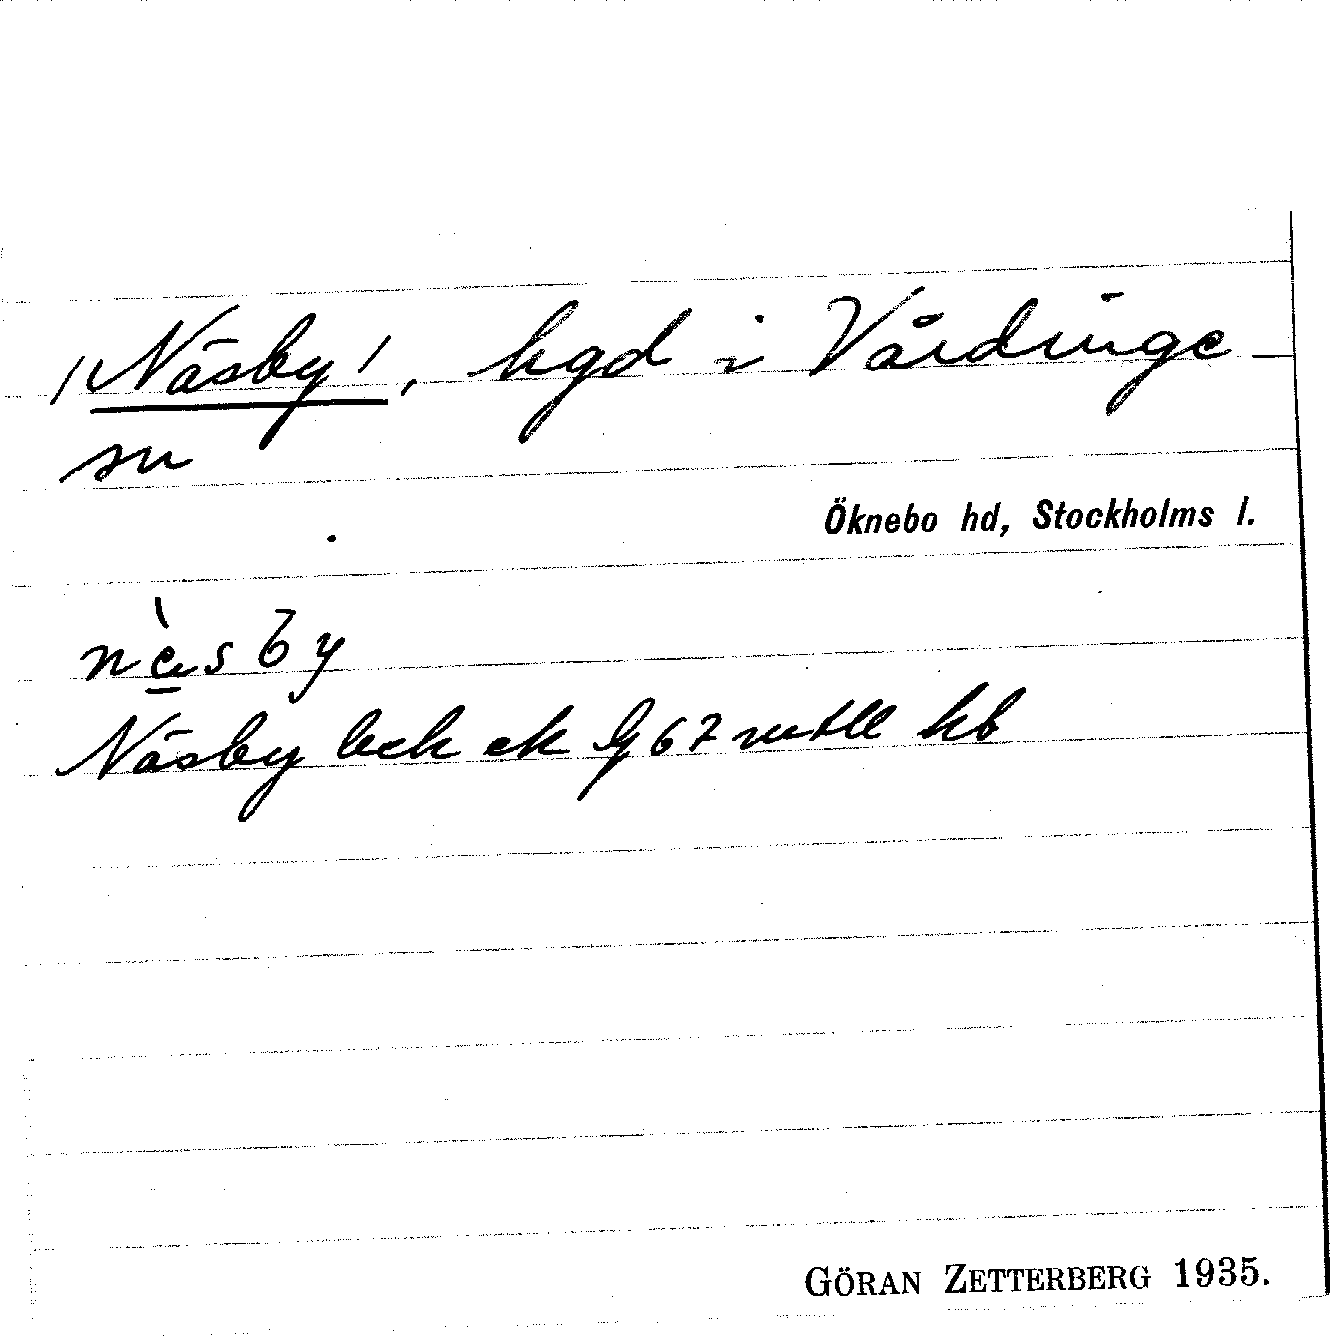 /Näsby/, hgd i Vårdinge
sn
Öknebo hd, Stockholms l.
nὲsby
Näsby bek ek G 67 mtll kb
GÖRAN ZETTERBERG 1935.